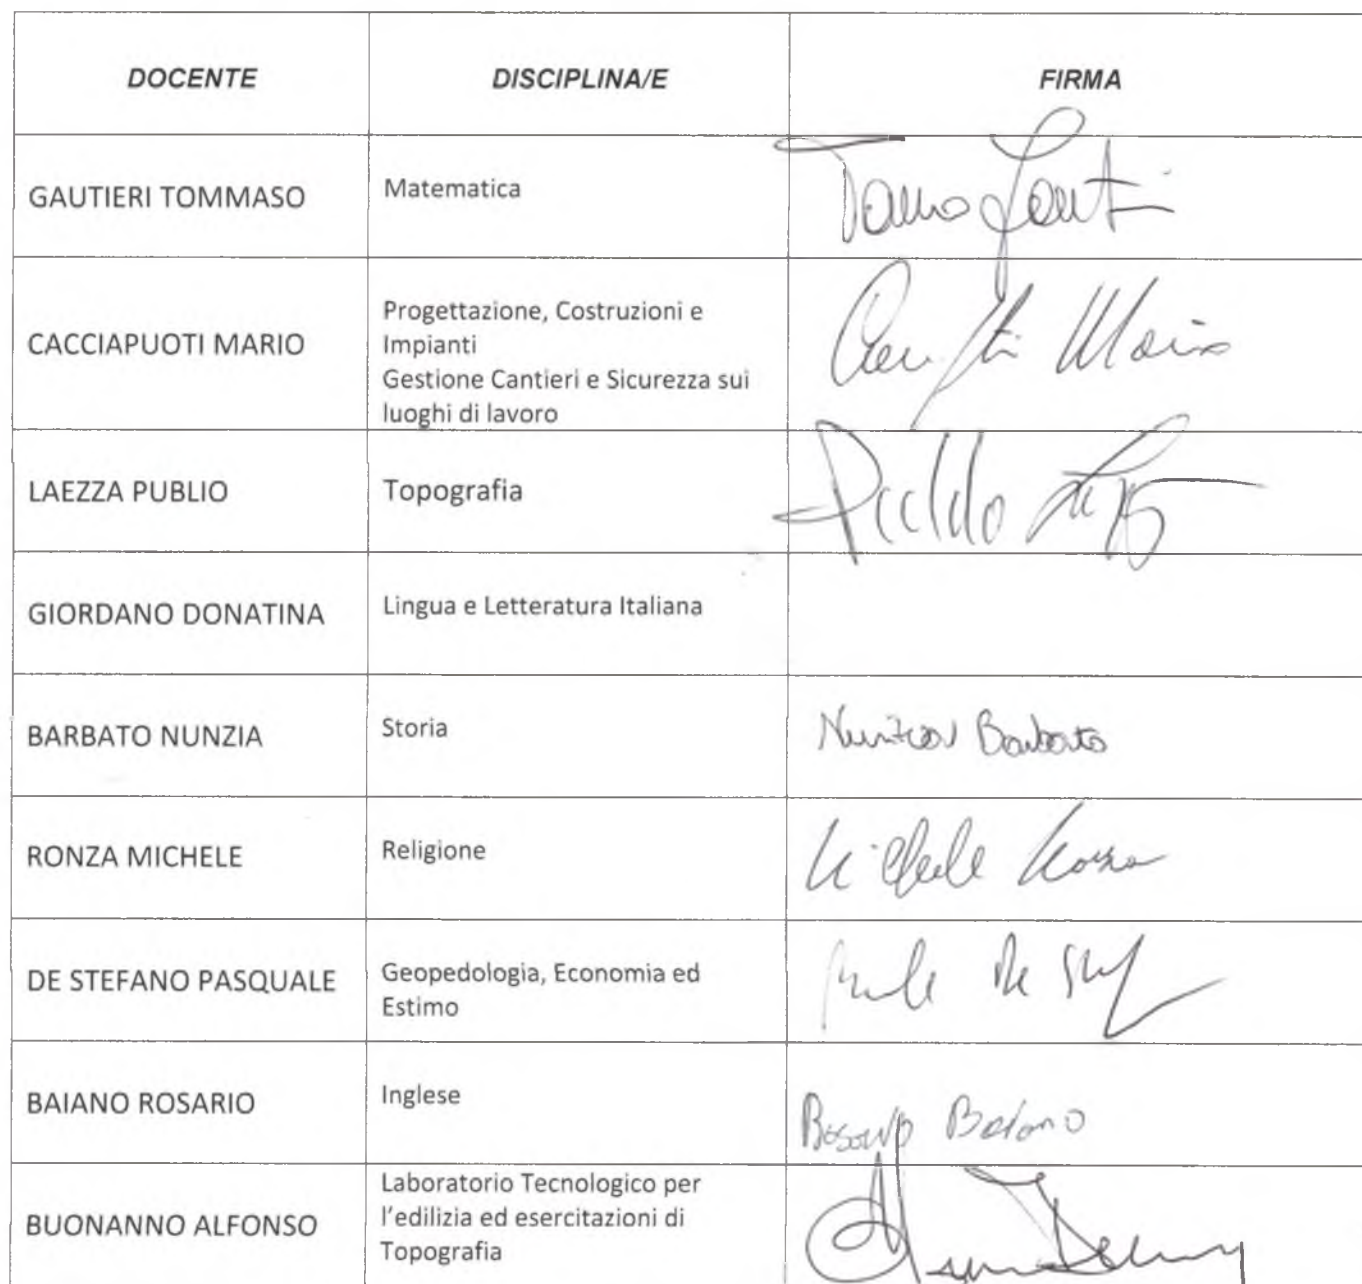 DOCENTE DISCIPLINA/E FIRMA
GAUTIERI TOMMASO Matematica
CACCIAPUOTI MARIO Progettazione, Costruzioni e
Impianti
Gestione Cantieri e Sicurezza sui
luoghi di lavoro
Mario
LAEZZA PUBLIO Topografia
GIORDANO DONATINA Lingua e Letteratura Italiana
BARBATO NUNZIA Storia Nunzia Barbato
RONZA MICHELE Religione Michele Ronza
DE STEFANO PASQUALE Geopedologia, Economia ed
Estimo
BAIANO ROSARIO Inglese Rosario Baiano
BUONANNO ALFONSO Laboratorio Tecnologico per
l'edilizia ed esercitazioni di
Topografia